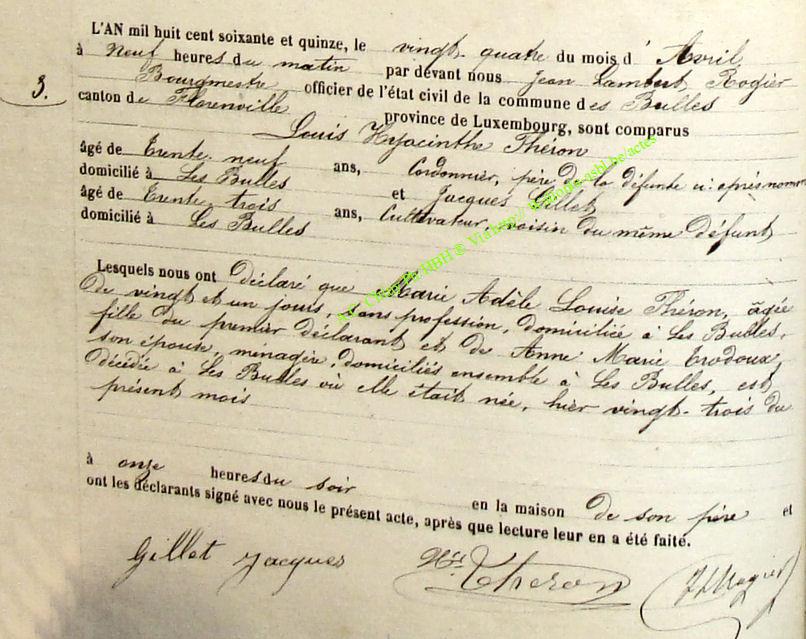 L'AN mil huit cent soixante et quinze, le vingt-quatre du mois d'Avril
à neuf heures du matin par devant nous Jean Lambert Rogier
Bourgmestre officier de l'état civil de la commune des Bulles
3.
canton de Florenville province de Luxembourg, sont comparus
Louis Hyacinthe Théron
âgé de Trente neuf ans, Cordonnier, père de la défunte ci-après nommée
domicilié à Les Bulles et Jacques Gillet
âgé de Trente trois ans, Cultivateur, voisin du même défunt
domicilié à Les Bulles
Lesquels nous ont déclaré que Marie Adèle Louise Théron, âgée
de vingt et un jours, sans profession, domiciliée à Les Bulles,
fille du premier déclarant et de Anne Marie Trodoux
son épouse, ménagère, domiciliés ensemble à Les Bulles, est
décédée à Les Bulles où elle était née, hier vingt-trois du
présent mois
à onze heures du soir en la maison de son père et
ont les déclarants signé avec nous le présent acte, après que lecture leur en a été faite.
Gillet Jacques Hte Theron JLRogier